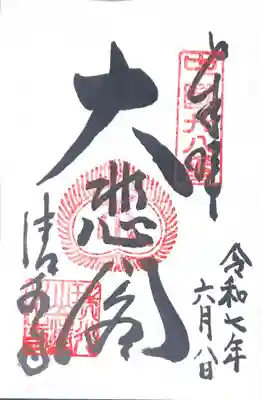 奉拝
令和七年
六月八日
大悲閣
清水寺